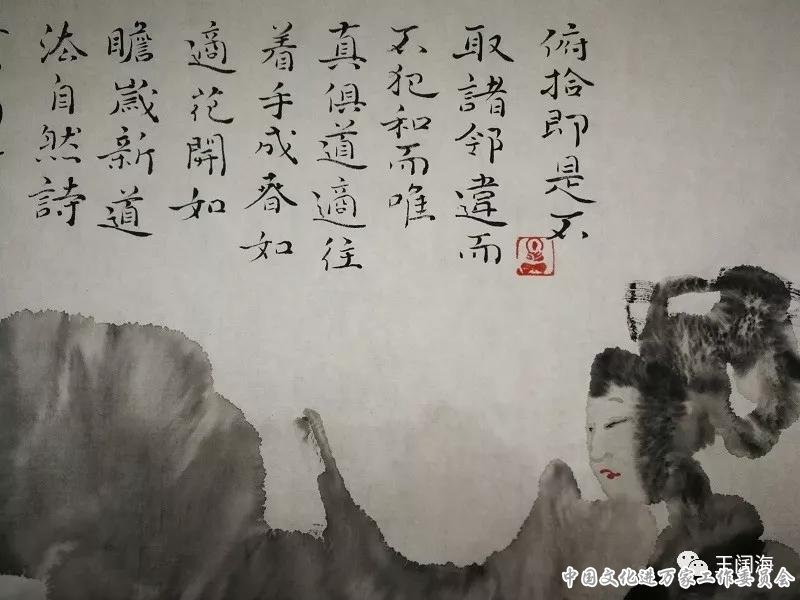 俯拾即是不
取諸邻違而
不犯和而唯
真俱道適往
着手成春如
適花開如
瞻嵗新道
法自然詩
王阔海
中国文化进万家工作委员会